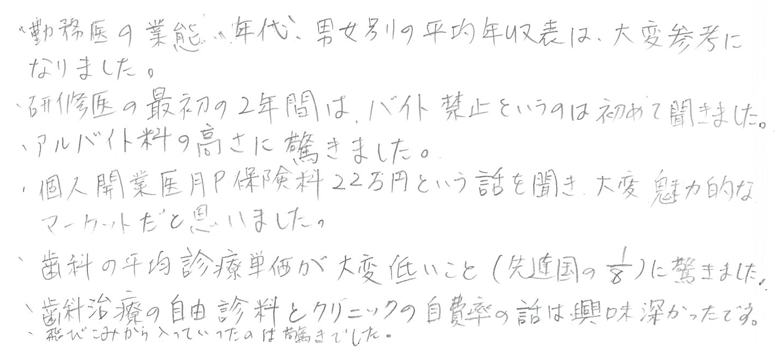 ・勤務医の業態、年代、男女別の平均年収表は、大変参考に
なりました。
・研修医の最初の2年間は、バイト禁止というのは初めて聞きました。
・アルバイト料の高さに驚きました。
・個人開業医月P保険料22万円という話を聞き、大変魅力的な
マーケットだと思いました。
・歯科の平均診療単価が大変低いこと(先進国の1/8)に驚きました。
・歯科治療の自由診料とクリニックの自費率の話は興味深かったです。
・飛びこみから入っていったのは驚きでした。